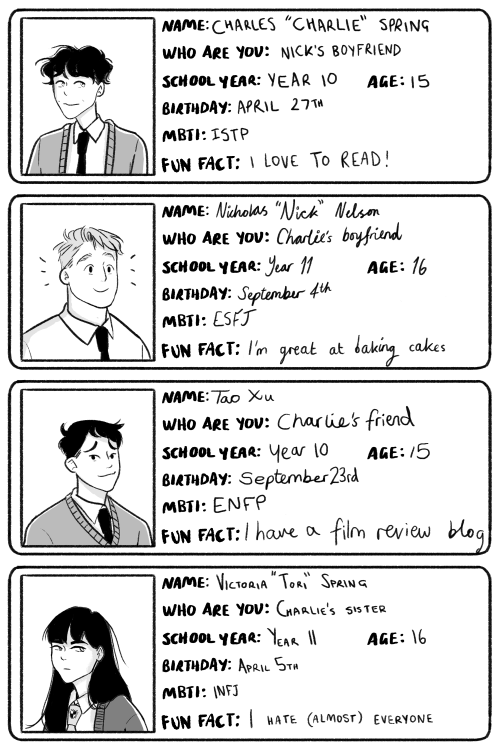 NAME: CHARLES "CHARLIE" SPRING
WHO ARE YOU: NICK'S BOYFRIEND
SCHOOL YEAR: YEAR 10 AGE: 15
BIRTHDAY: APRIL 27TH
MBTI: ISTP
FUN FACT: I LOVE TO READ!
NAME: Nicholas "Nick" Nelson
WHO ARE YOU: Charlie's boyfriend
SCHOOL YEAR: Year 11 AGE: 16
BIRTHDAY: September 4th
MBTI: ESFJ
FUN FACT: I'm great at baking cakes
NAME: Tao Xu
WHO ARE YOU: Charlie's friend
SCHOOL YEAR: Year 10 AGE: 15
BIRTHDAY: September 23rd
MBTI: ENFP
FUN FACT: I have a film review blog
NAME: VICTORIA "TORI" SPRING
WHO ARE YOU: CHARLIE'S SISTER
SCHOOL YEAR: YEAR 11 AGE: 16
BIRTHDAY: APRIL 5TH
MBTI: INFJ
FUN FACT: I HATE (ALMOST) EVERYONE